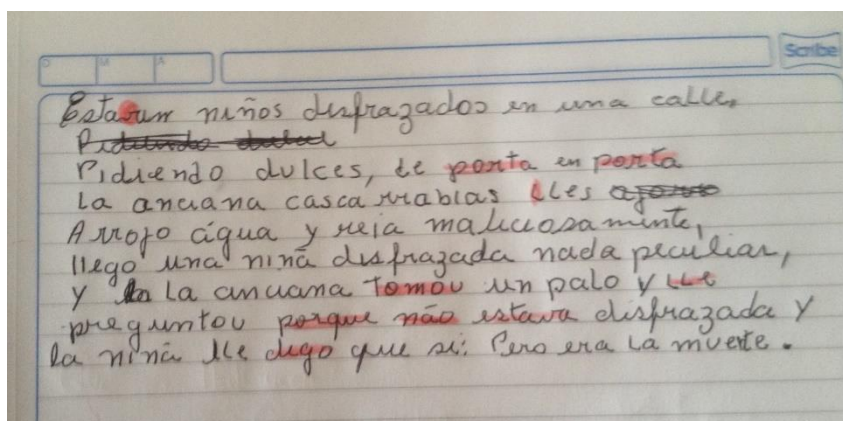 Scribe
D M A
Estavam niños disfrazados en una calle,
Pidiendo dulces, de porta en porta
La anciana casca rrabias lles
Arrojo água y reia maliciosamente,
llego una ninã disfrazada nada peculiar,
y La anciana Tomou un palo y lle
preguntou porque não estava disfrazada y
la ninã lle digo que si: Pero era La muerte.